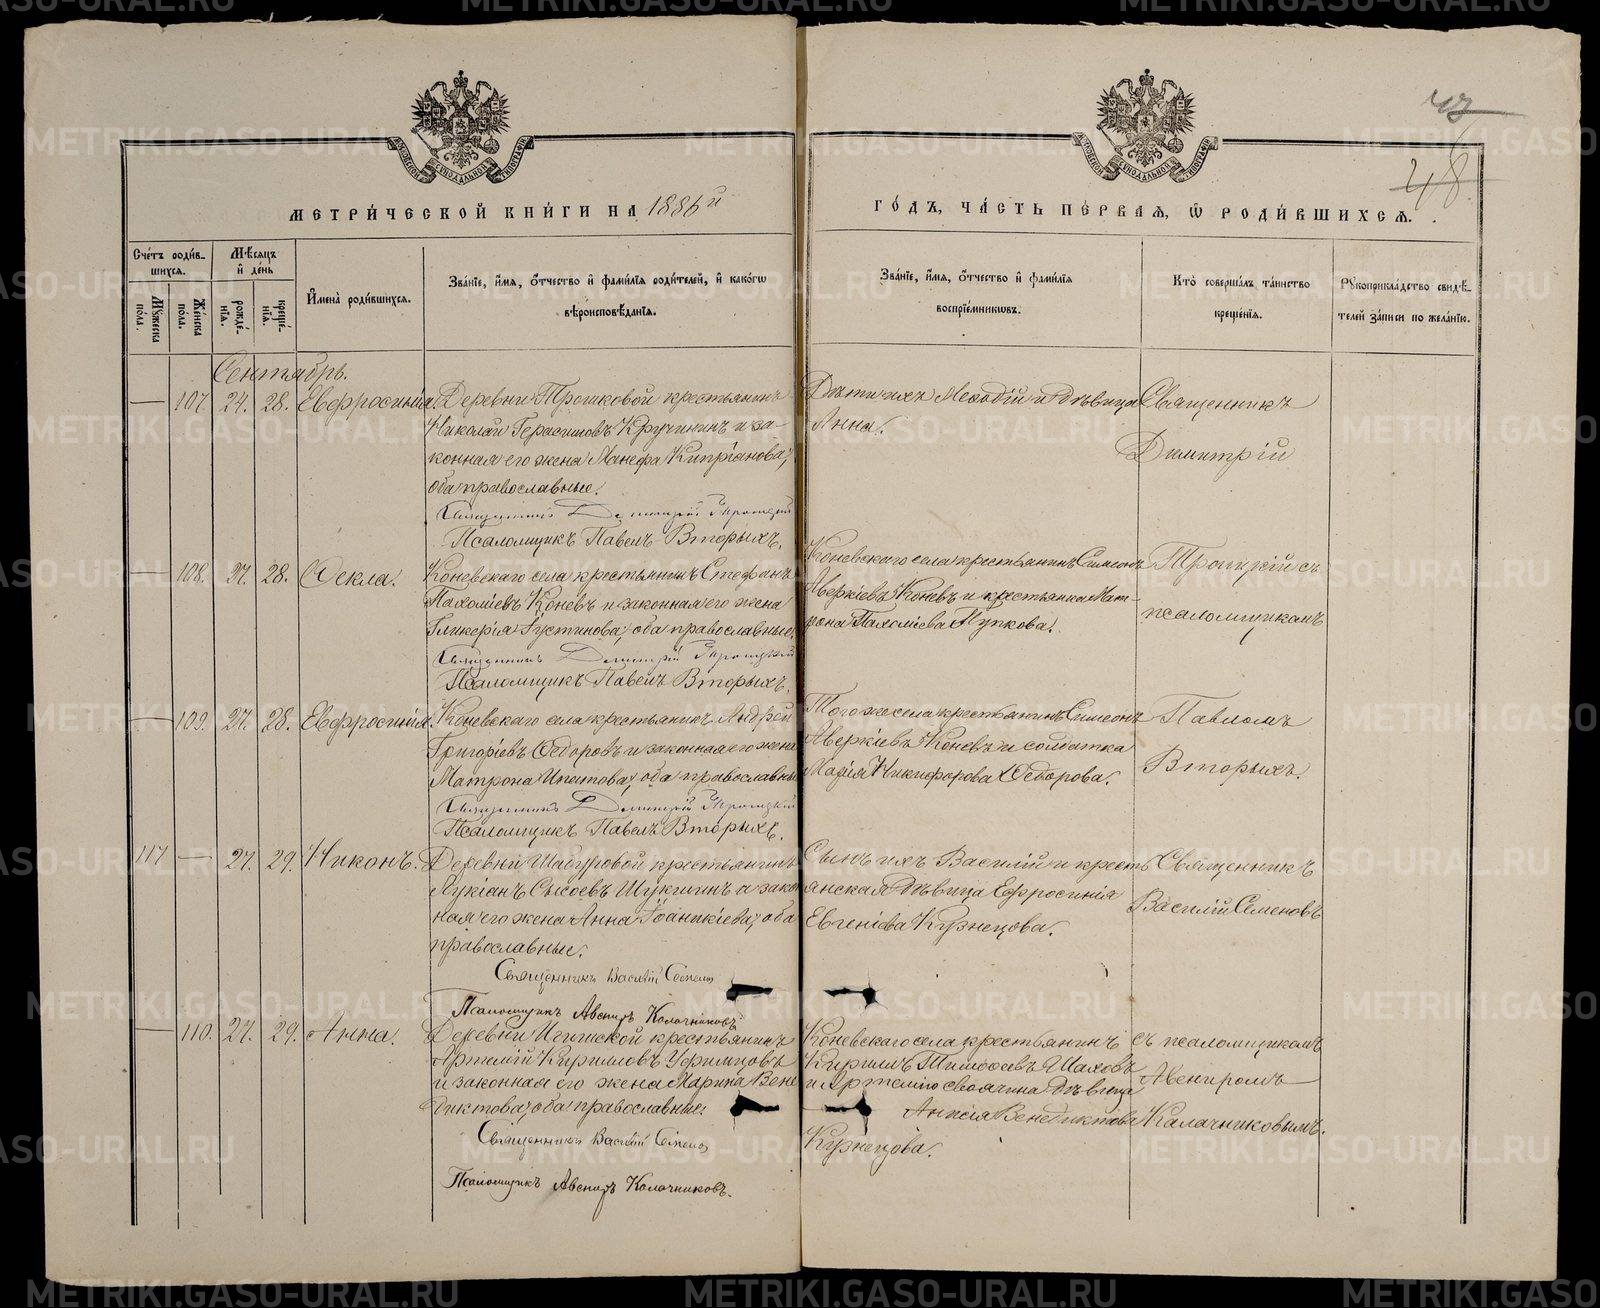 МЕТРИ́ЧЕСКОЙ КНИ́ГИ НА 1886й
ГО́ДЪ, ЧА́СТЬ ПЕ́РВАЯ, Ѿ РОДИ́ВШИХСЯ.
48
Сче́тъ роди́в-
шихся.
Мѣ́сяцъ
и҆ де́нь
Мꙋ́жеска
по́ла.
Же́нска
по́ла.
рожде́-
нїѧ.
креще́-
нїѧ.
И҆мена̀ роди́вшихсѧ.
Зва́нїе, и҆́мѧ, ѻ҆́тчество и҆ фами́лїѧ роди́телей, и҆ како́гѡ
вѣроисповѣ́данїѧ.
Зва́нїе, и҆́мѧ, ѻ҆́тчество и҆ фами́лїѧ
воспрїе́мникѡвъ.
Кто̀ соверша́лъ та́инство
креще́нїѧ.
Рꙋкоприкла́дство свидѣ́-
телей за́писи по жела́нїю.
Сентябрь.
107. 24. 28. Евфросинія.
Деревни Трошковой крестьянинъ
Николай Герасимовъ Кручининъ и за-
конная его жена Манефа Кипріанова,
оба православные.
Священникъ Димитрій Троицкій
Псаломщикъ Павелъ Вторыхъ.
Дѣти ихъ Меѳодій и дѣвица
Анна.
Священникъ
Димитрій
108. 27. 28. Ѳекла.
Коневскаго села крестьянинъ Стефанъ
Пахоміевъ Коневъ и законная его жена
Гликерія Іустинова, оба православные.
Священникъ Димитрій Троицкій
Псаломщикъ Павелъ Вторыхъ.
Коневскаго села крестьянинъ Симеонъ
Аверкіевъ Коневъ и крестьянка Мат-
рона Пахоміева Пупкова.
Троицкій съ
псаломщикомъ
109. 27. 28. Евфросинія.
Коневскаго села крестьянинъ Андрей
Григоріевъ Ѳедоровъ и законная его жена
Матрона Ипатова, оба православные
Священникъ Димитрій Троицкій
Псаломщикъ Павелъ Вторыхъ.
Того же села крестьянинъ Симеонъ
Аверкіевъ Коневъ и солдатка
Марія Никифорова Ѳедорова.
Павломъ
Вторыхъ.
117 27. 29. Никонъ.
Деревни Шабуровой крестьянинъ
Лукіанъ Сысоевъ Шукшинъ и закон
ная его жена Анна Іоаникіева, оба
православные.
Священникъ Василій Семеновъ
Псаломщикъ Авениръ Калачниковъ.
Сынъ ихъ Василій и кресть
янская дѣвица Ефросинія
Евгеніева Кузнецова.
Священникъ
Василій Семеновъ
110. 27. 29. Анна.
Деревни Игишской крестьянинъ
Артемій Кириловъ Уфимцовъ
и законная его жена Марина Вене
диктова, оба православные.
Священникъ Василій Семеновъ
Псаломщикъ Авениръ Калачниковъ.
Коневскаго села крестьянинъ
Кирилъ Тимоѳеевъ Шаховъ
и Артемію своячина дѣвица
Анисія Венедиктова
Кузнецова.
съ псаломщикомъ
Авениромъ
Калачниковымъ.
METRIKI.GASO-URAL.RU